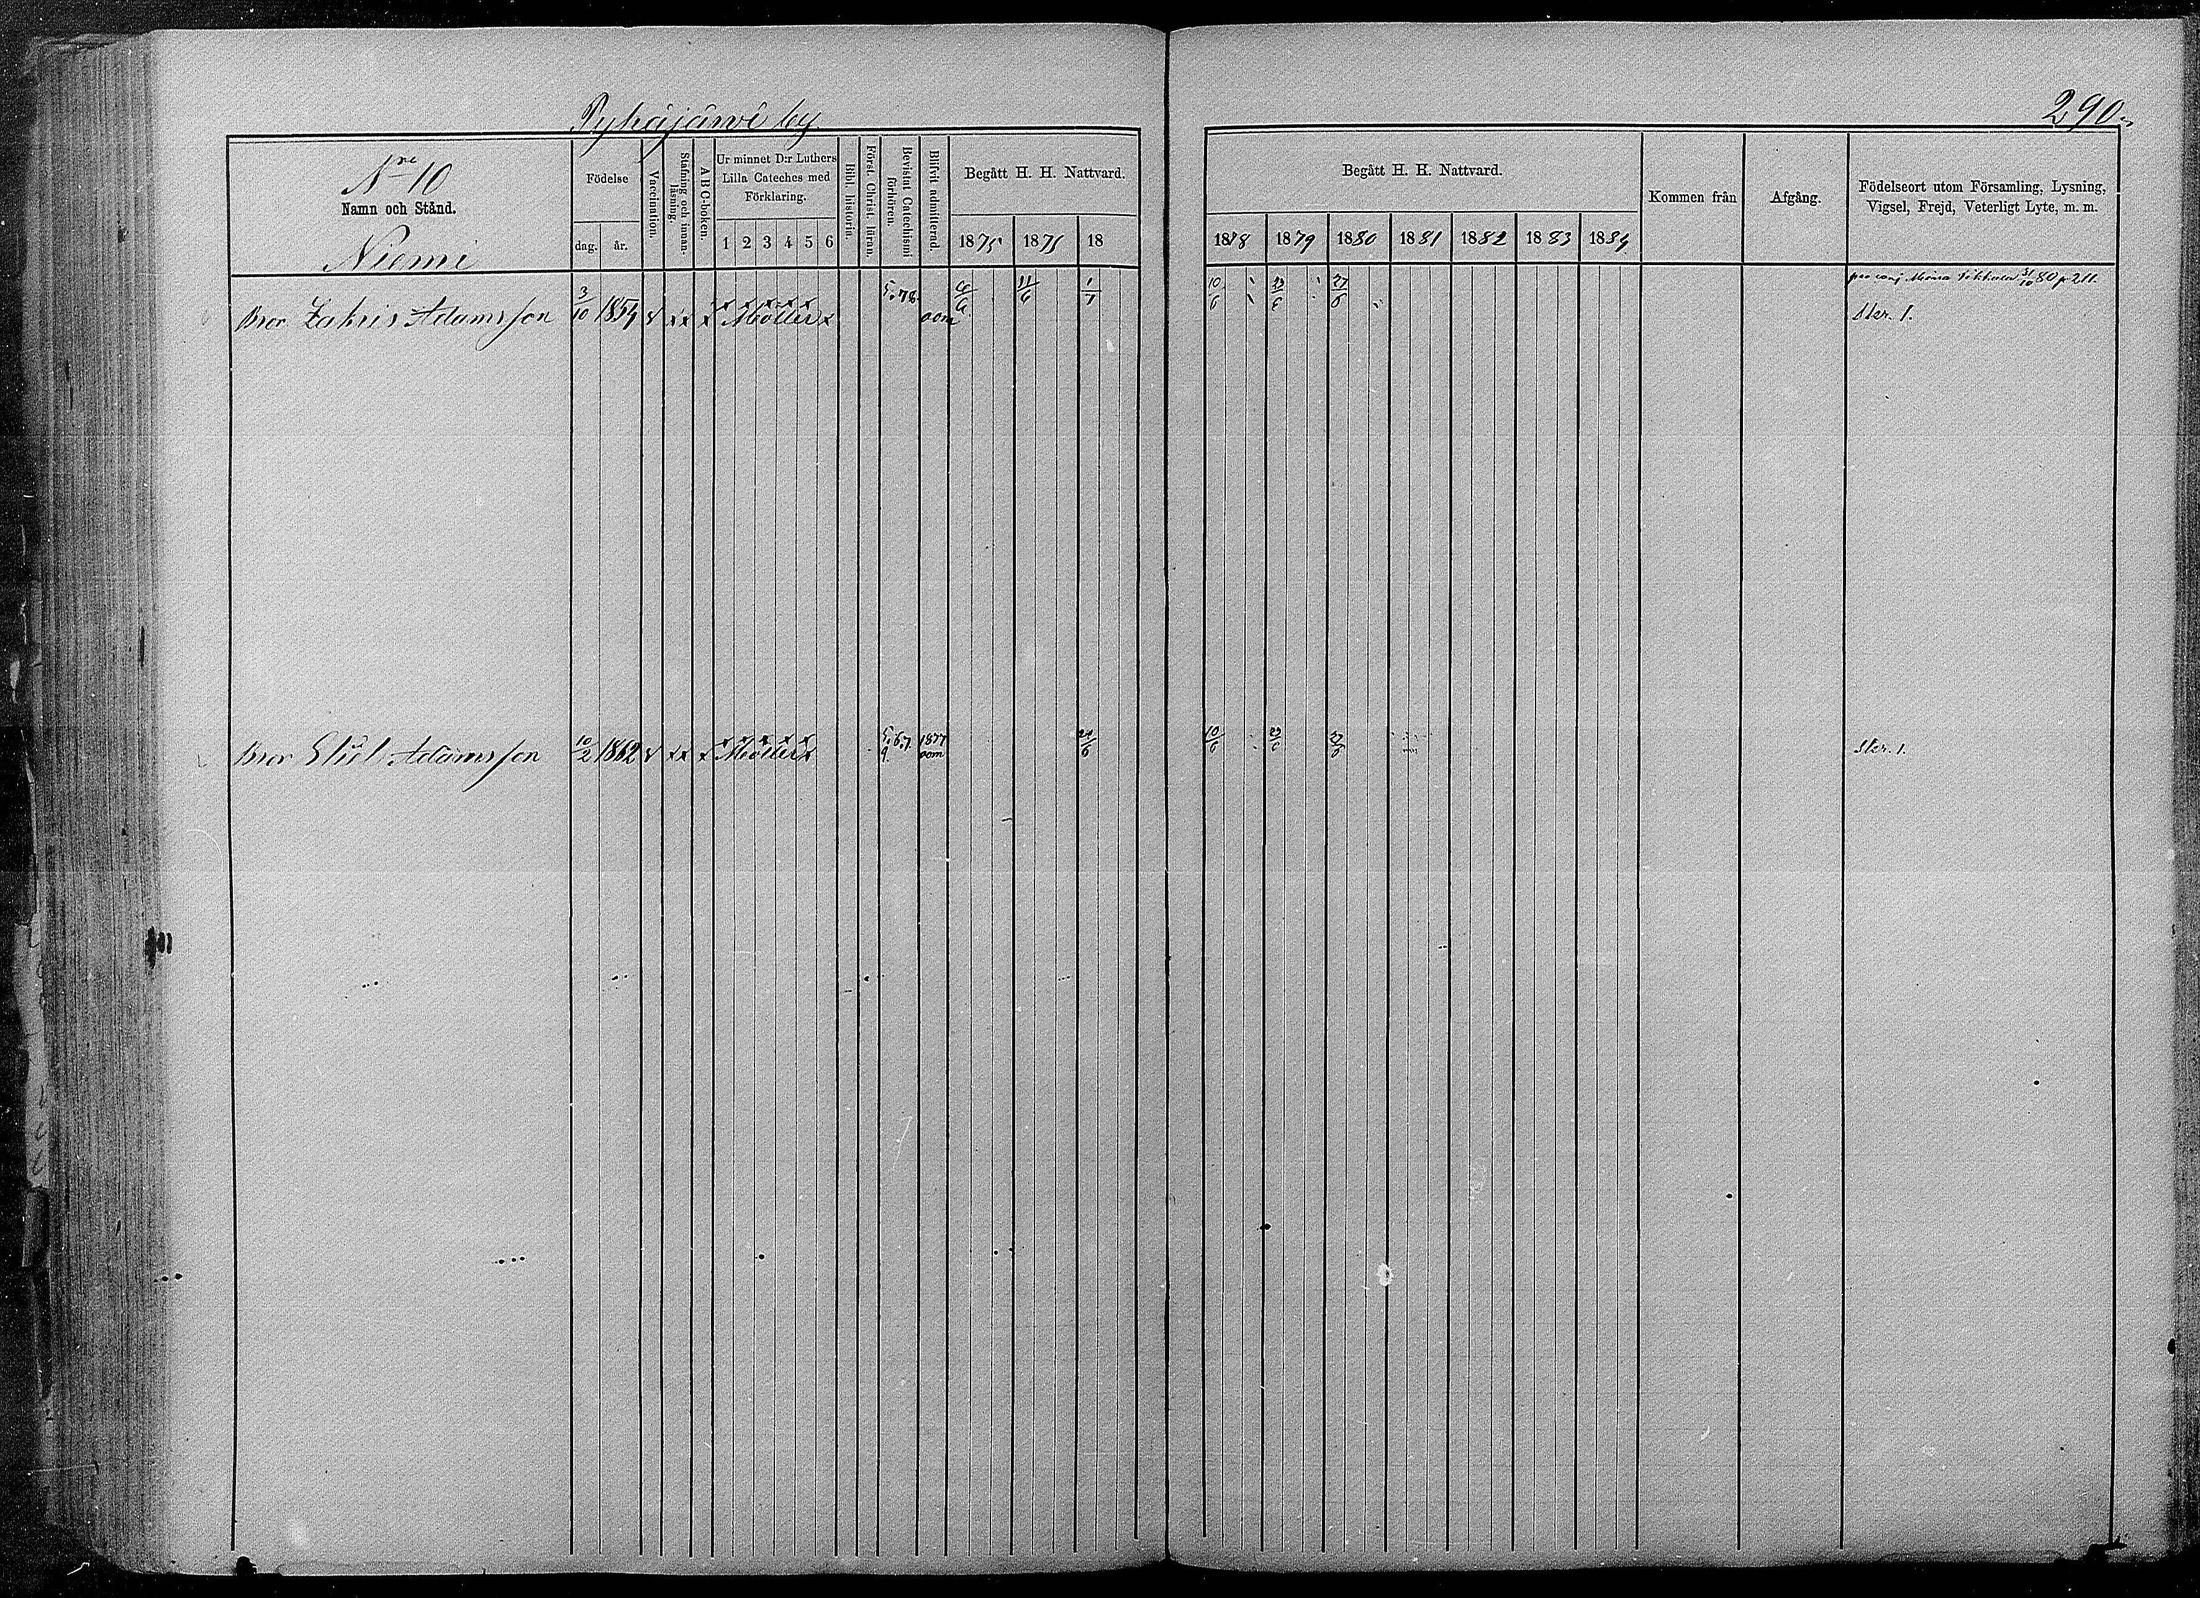 Pyhäjärvi by.
290.
Nro 10
Namn och Stånd.
Niemi
Födelse
dag. år.
Vaccination.
Stafning och innan-läsning.
A B C-boken.
Ur minnet D:r Luthers
Lilla Cateches med
Förklaring.
1 2 3 4 5 6
Bibl. historia.
Först. Christ. läran.
Bevistat Catechismi förhören.
Blifvit admitterad.
Begått H. H. Nattvard.
1875 1875 18
Begått H. H. Nattvard.
1878 1879 1880 1881 1882 1883 1884
Kommen från
Afgång.
Födelseort utom Församling, Lysning,
Vigsel, Frejd, Veterligt Lyte, m. m.
Bror Zakris Adamsson 3/10 1854 v x x x Möller x 5.78. 6/6 11/6 1/1 10/6 23/6 27/6 31/10 80 p 211.
Skr. 1.
Bror Adamsson 10/2 1862 v x x x Möller x 5.6.7. 9. 1877 24/6 10/6 23/6 27/6 Skr. 1.